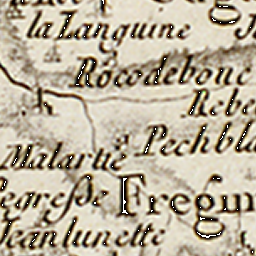 la Languine
Rocodeboue
Rebe
Pechbla
Malartie
Fregim
Jeanlunette